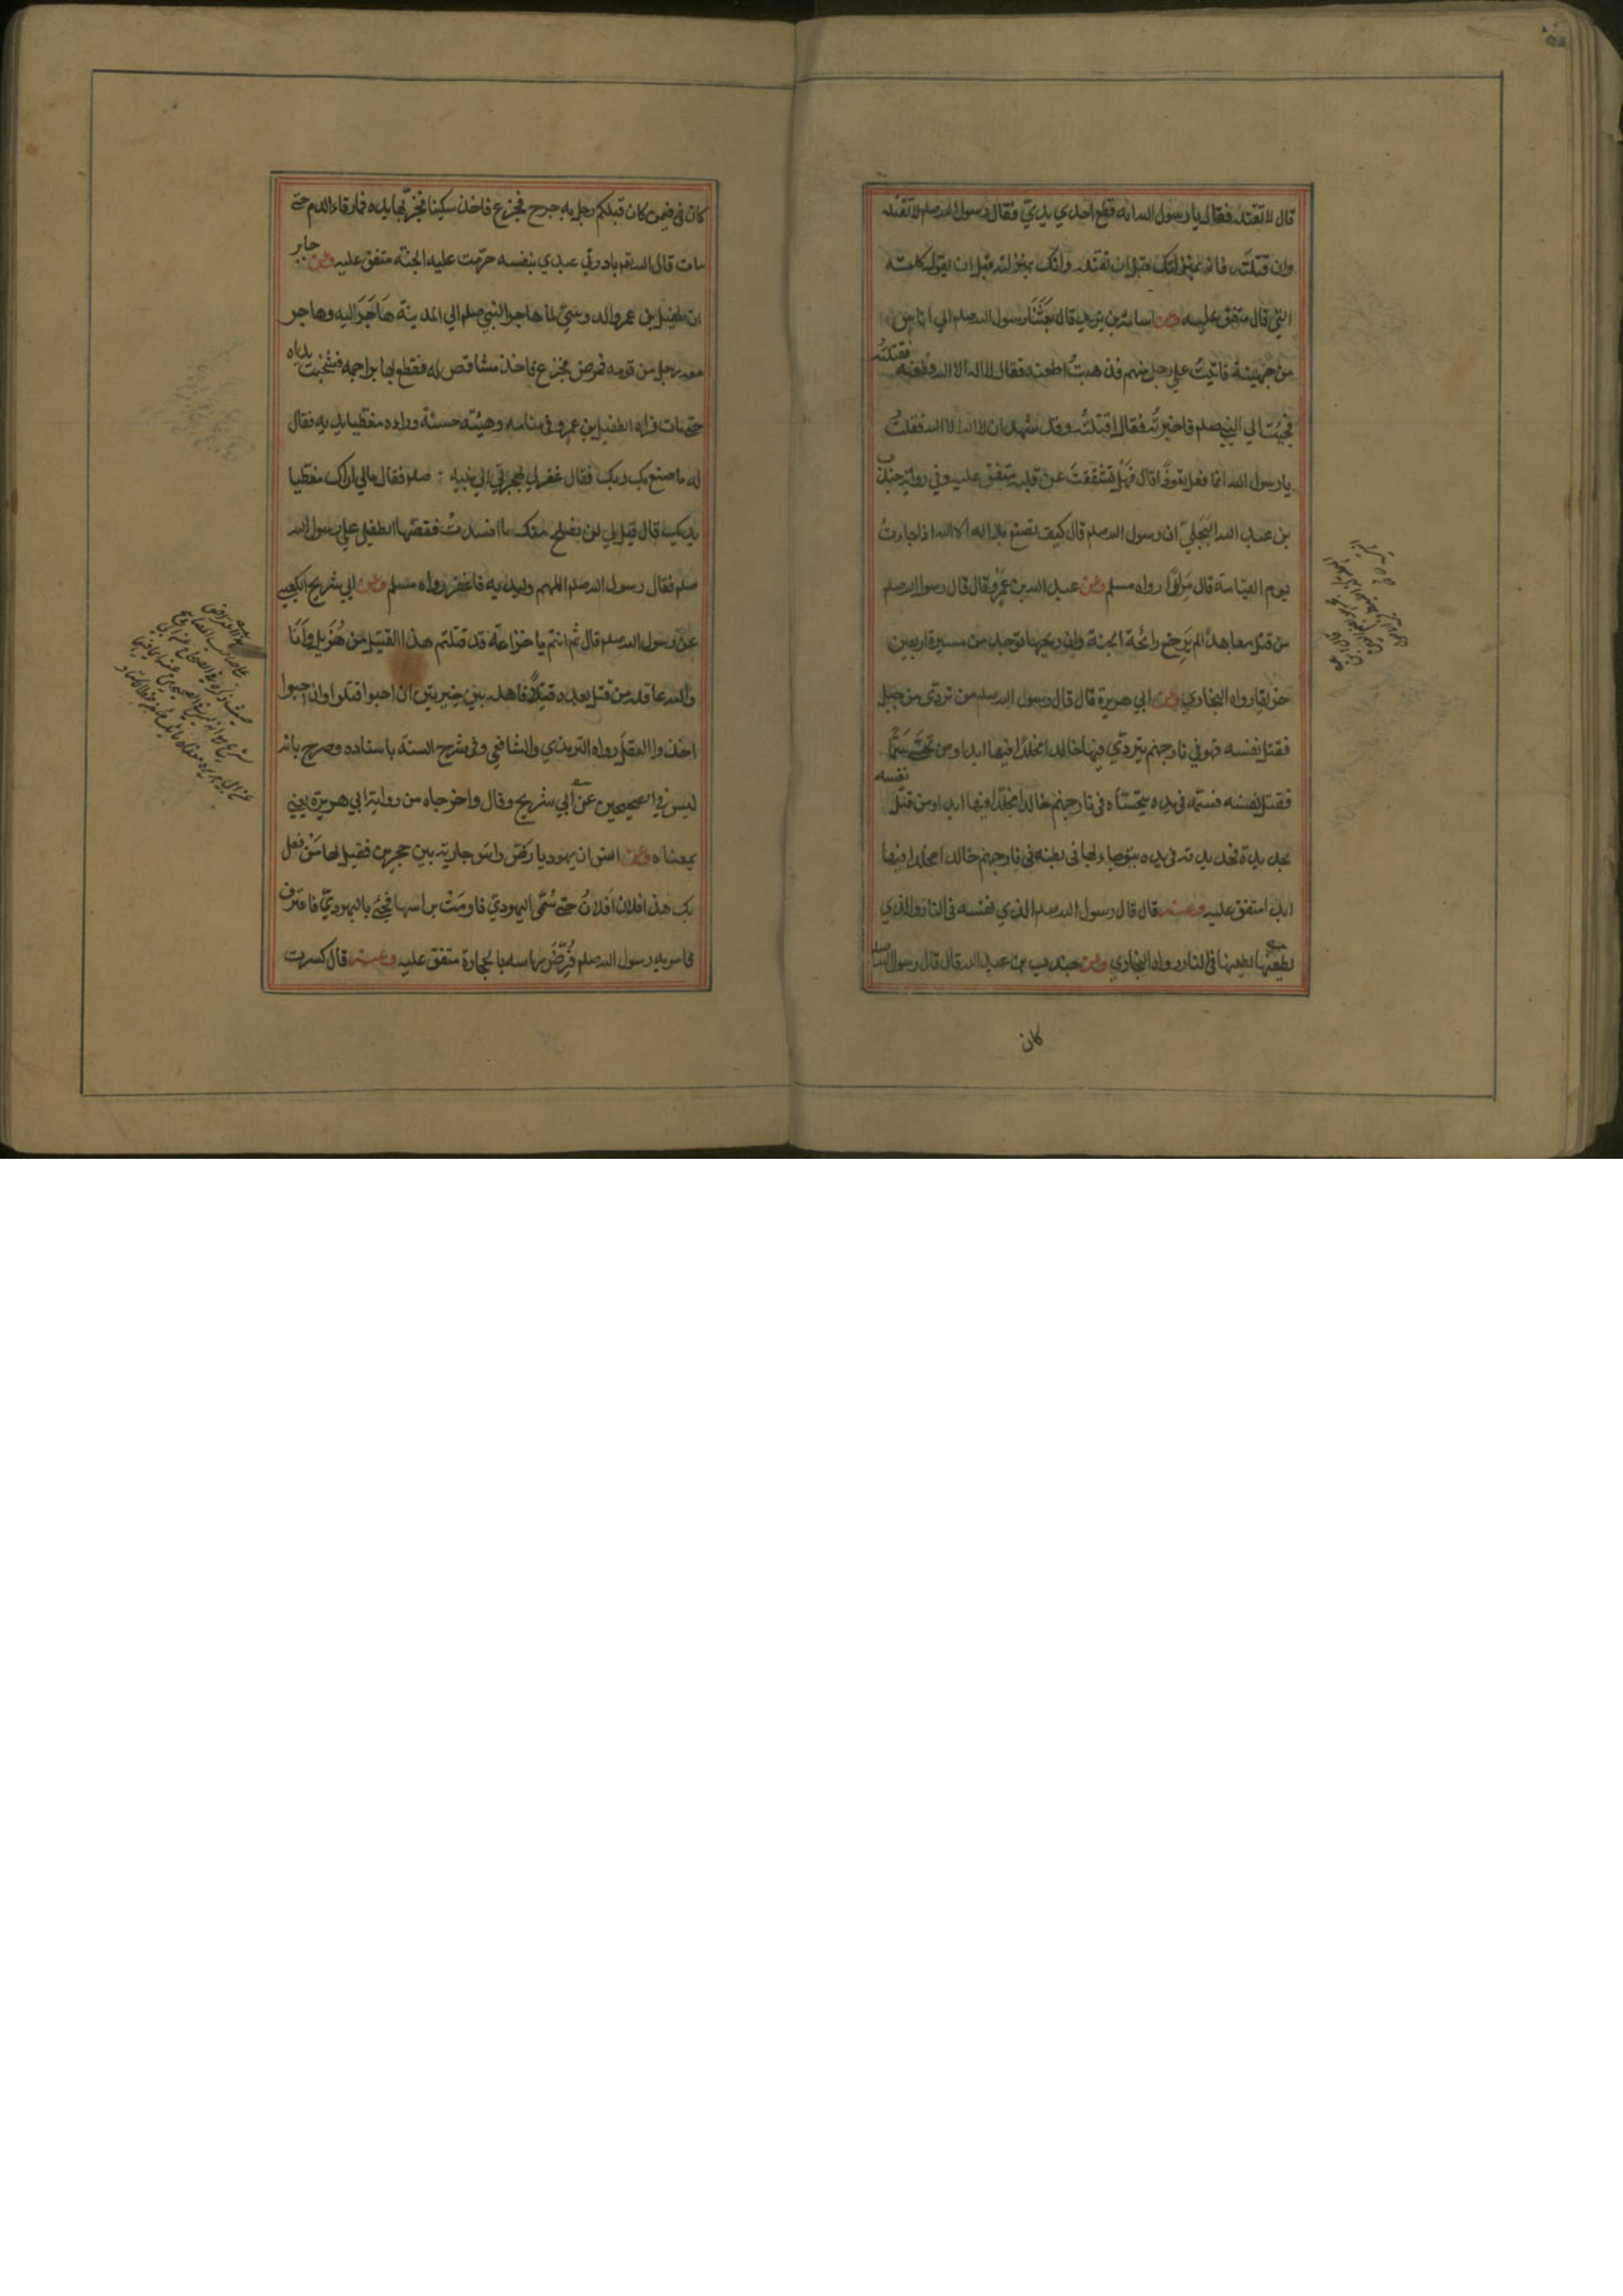 قال لا تقتله فقال يا رسول الله انه قطع احدي يديّ فقال رسول الله صلم لا تقتله
وان قتلته فانه بمنزلتك قبل ان تقتله وانك بمنزلته قبل ان يقول كلمته
التي قال متفق عليه وعن اسامة بن زيد قال بَعَثَنَا رسول الله صلم الي اناس
من جُهينة فاتيتُ علي رجل منهم فذهبتُ اطعنه فقال لا اله الا الله فطعنته فقتلتُه
فجئت الي النبي صلم فاخبرتُه فقال اقتلتَه وقد شهد ان لا اله الا الله فقلتُ
يا رسول الله انما فعل تعوذًا قال فهلّا شَقَقتَ عن قلبه متفق عليه وفي رواية جندب
بن عبد الله البَجَليّ ان رسول الله صلم قال كيف تصنع بلا اله الا الله اذا جاءت
يوم القيامة قال مِرارًا رواه مسلم وعن عبد الله بن عَمرو قال قال رسول الله صلم
من قتل معاهدًا لم يَرِح رائحة الجنة وان ريحها توجد من مسيرة اربعين
خريفا رواه البخاري وعن ابي هريرة قال قال رسول الله صلم من تردّى من جبل
فقتل نفسه فهو في نار جهنم يتردّي فيها خالدا مخلّدًا فيها ابدا ومن تحسّى سَمًّا
فقتل نفسه فسمّه في يده يتحسّاه في نار جهنم خالدا مخلّدا فيها ابدا ومن قتل نفسه
بحديدة فحديدته في يده يتوجاء بها في بطنه في نار جهنم خالدا مخلدا فيها
ابدا متفق عليه وعنه قال قال رسول الله صلم الذي يخنق نفسه في النار والذي
يطعنها يطعنها في النار رواه البخاري وعن جندب بن عبد الله قال قال رسول الله صلم
كان
كان في فيمن كان قبلكم رجل به جرح فجزع فاخذ سكينا فجزّ بها يده فما رقاء الدم حتى
مات قال الله تعم بادرني عبدي بنفسه حرّمت عليه الجنة متفق عليه وعن جابر
ان طفيل بن عمرو الدوسيّ لما هاجر النبي صلم الي المدينة هَاجَرَ اليه وهاجر
معه رجل من قومه فمرض فجزع فاخذ مشاقص له فقطع بها براجمه فشخبت يداه
حتى مات فراه الطفيل بن عمرو في منامه وهيئته حسنة وراه مغطيا يديه فقال
له ما صنع بك ربك فقال غفر لي بهجرتي الي نبيه صلم فقال مالي اراك مغطيا
يديك قال قيل لي لن نصلح منك ما افسدتْ فقصّها الطفيل علي رسول الله
صلم فقال رسول الله صلم اللهم وليديه فاغفر رواه مسلم وعن ابي شريح الكعبي
عن رسول الله صلم قال ثم انتم يا خزاعة قد قتلتم هذا القتيل من هُذَيل وأنا
والله عاقله من قتل بعده قتيلًا فاهله بين خيرتين ان احبوا قتلوا وان احبوا
اخذوا العقل رواه الترمذي والشافعي وفي شرح السنة باسناده وصرح بانه
ليس في الصحيحين عن ابي شريح وقال واخرجاه من رواية ابي هريرة يعني
بمعناه وعن انس ان يهوديا رضّ راس جارية بين حجرين فقيل لها مَنْ فعل
بك هذا افلان أفلانٌ حتى سُمّي اليهوديّ فاومَتْ براسها فجيء باليهوديّ فاعترف
فامر به رسول الله صلم فَرُضّ راسه بالحجارة متفق عليه وعنه قال كسرت